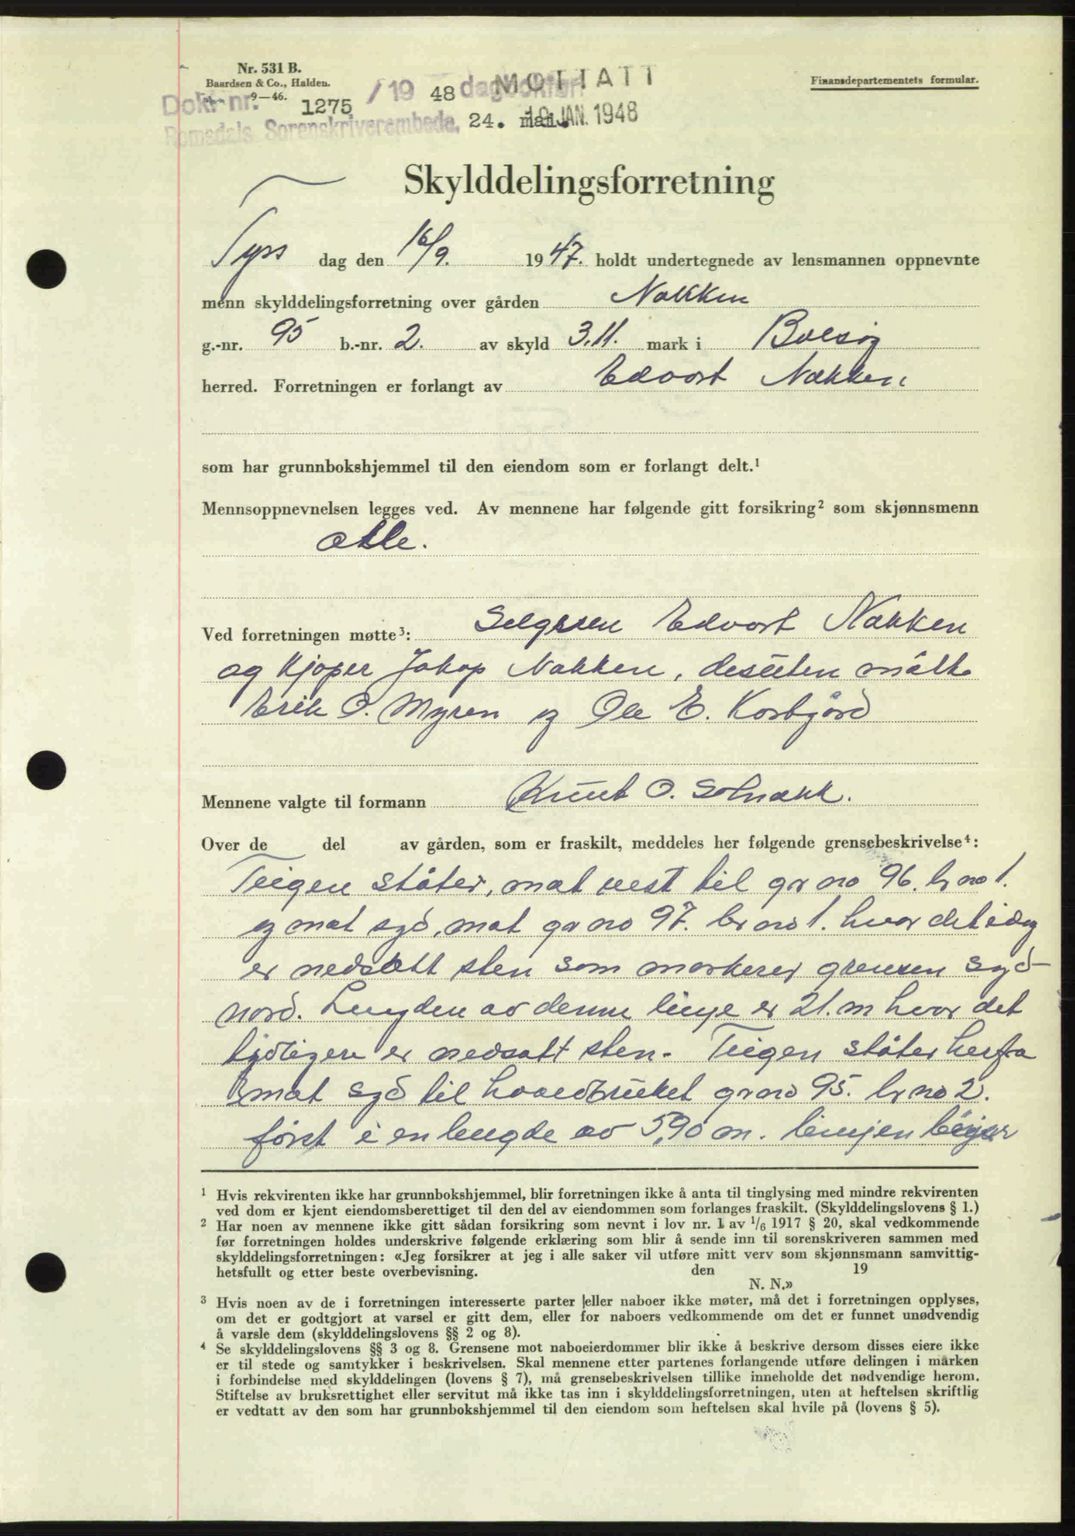 Nr. 531 B.
Baardsen & Co., Halden.
9—46.
Finansdepartementets formular.
MOTTATT
Dok. nr. 1275 / 19 48 dagbokført
JAN. 1948
Romsdals Sorenskriverembede, 24. mai.
Skylddelingsforretning
Tyrs dag den 16/9. 1947. holdt undertegnede av lensmannen oppnevnte
menn skylddelingsforretning over gården Nakken
g.-nr. 95 b.-nr. 2. av skyld 3.11. mark i Bolsøy
herred. Forretningen er forlangt av Edvart Nakken
som har grunnbokshjemmel til den eiendom som er forlangt delt.¹
Mennsoppnevnelsen legges ved. Av mennene har følgende gitt forsikring² som skjønnsmenn
alle.
Ved forretningen møtte³: Selgeren Edvart Nakken
og kjøper Jakop Nakken, desuten møtte
Erik O. Myren og Ole E. Korsgård
Mennene valgte til formann Knut O. Solnakk.
Over de del av gården, som er fraskilt, meddeles her følgende grensebeskrivelse⁴:
Teigen støter, mot vest til gr no 96. br no 1.
og mot syd, mot gr no 97. br no 1. hvor det idag
er nedsatt sten som markerer grensen syd-
nord. Lengden av denne linje er 21. m hvor det
ydligere er nedsatt sten. Teigen støter herfra
mot syd til hovedbruket gr no 95. br no 2.
først i en lengde av 5,90 m. linjen bøyer
¹ Hvis rekvirenten ikke har grunnbokshjemmel, blir forretningen ikke å anta til tinglysing med mindre rekvirenten
ved dom er kjent eiendomsberettiget til den del av eiendommen som forlanges fraskilt. (Skylddelingslovens § 1.)
² Har noen av mennene ikke gitt sådan forsikring som nevnt i lov nr. 1 av ¹/₆ 1917 § 20, skal vedkommende
før forretningen holdes underskrive følgende erklæring som blir å sende inn til sorenskriveren sammen med
skylddelingsforretningen: «Jeg forsikrer at jeg i alle saker vil utføre mitt verv som skjønnsmann samvittig-
hetsfullt og etter beste overbevisning. den 19
N. N.»
³ Hvis noen av de i forretningen interesserte parter eller naboer ikke møter, må det i forretningen opplyses,
om det er godtgjort at varsel er gitt dem, eller for naboers vedkommende om det er funnet unødvendig
å varsle dem (skylddelingslovens §§ 2 og 8).
⁴ Se skylddelingslovens §§ 3 og 8. Grensene mot naboeierdommer blir ikke å beskrive dersom disses eiere ikke
er til stede og samtykker i beskrivelsen. Skal mennene etter partenes forlangende utføre delingen i marken
i forbindelse med skylddelingen (lovens § 7), må grensebeskrivelsen tillike inneholde det nødvendige herom.
Stiftelse av bruksrettighet eller servitut må ikke tas inn i skylddelingsforretningen, uten at heftelsen skriftlig
er vedtatt av den som har grunnbokshjemmel til den eiendom som heftelsen skal hvile på (lovens § 5).